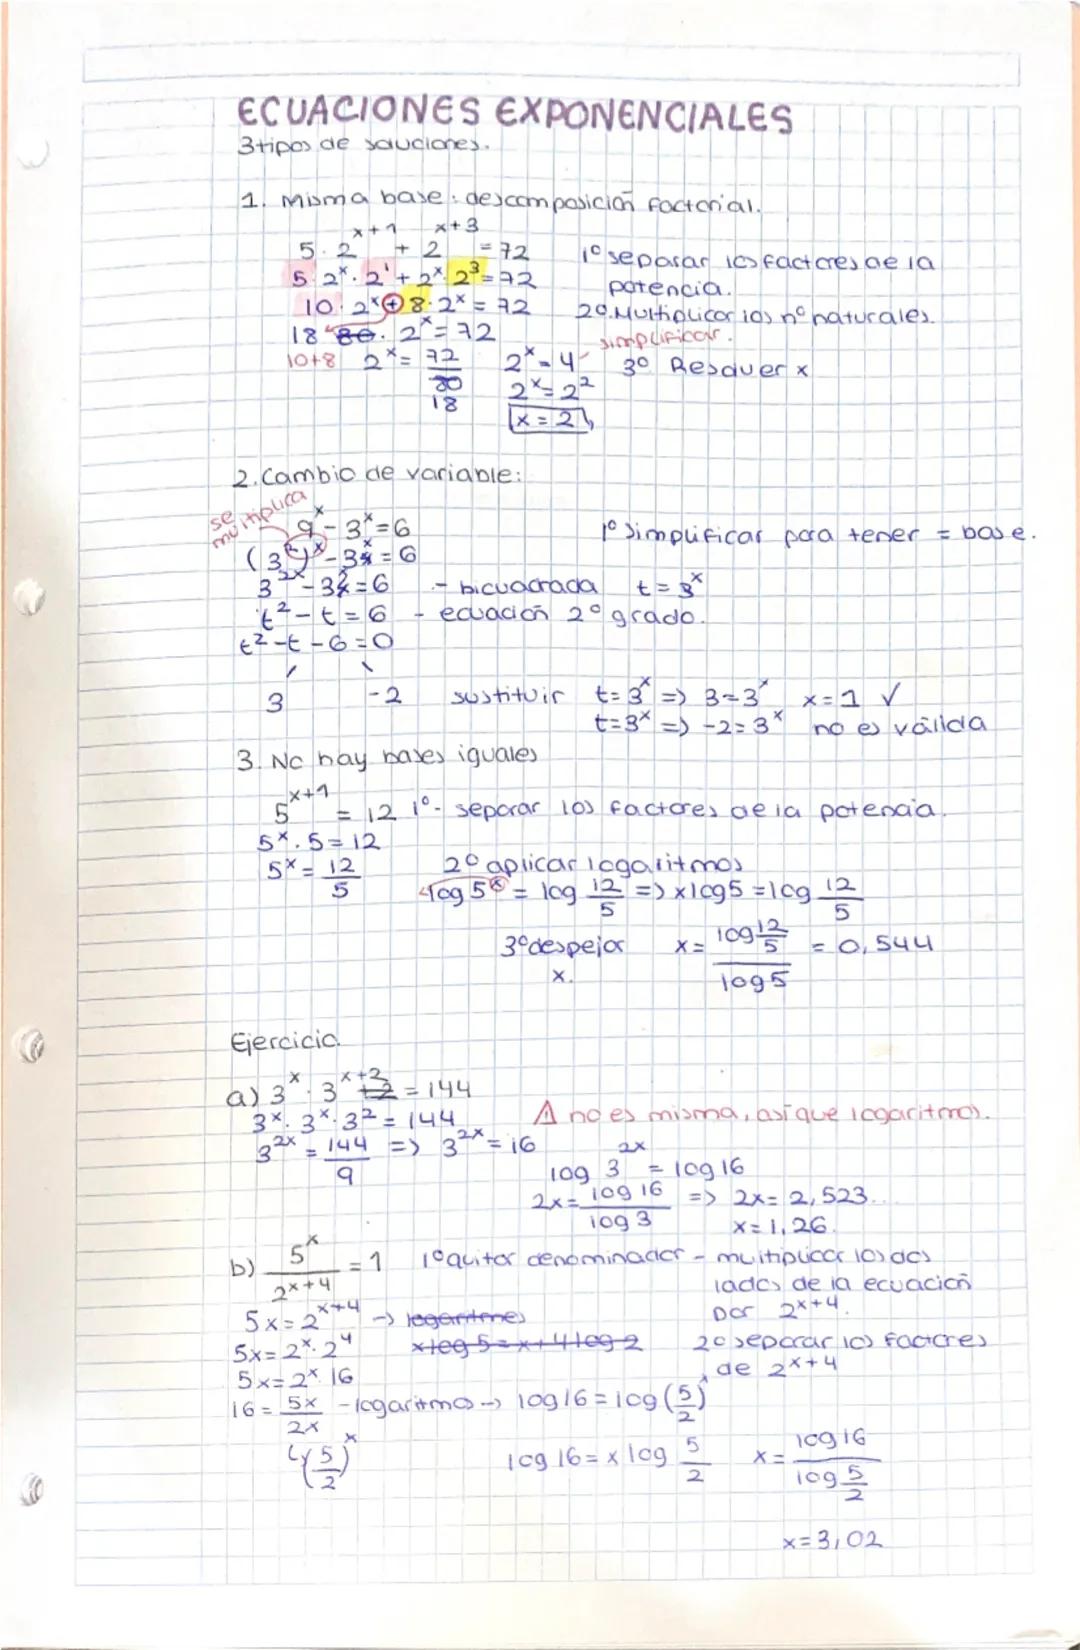 ECUACIONES EXPONENCIALES
3 tipos de soluciones.
1. Misma base: descomposición factorial.
5 · 2^(x+1) + 2^(x+3) = 72
1º separar los factores de la potencia.
5 · 2^x · 2^1 + 2^x · 2^3 = 72
10 · 2^x + 8 · 2^x = 72
2º. Multiplicar los nº naturales.
simplificar.
18 80 · 2^x = 72
10+8
2^x = 72/80
18
2^x = 4
3º Resolver x
2^x = 2^2
x = 2
2. Cambio de variable:
se multiplica
9^x - 3^x = 6
1º simplificar para tener = base.
(3^2)^x - 3^x = 6
3^2x - 3^x = 6 - bicuadrada t = 3^x
t^2 - t = 6 - ecuación 2º grado.
t^2 - t - 6 = 0
3 -2 sustituir t = 3^x => 3 = 3^x x = 1 ✓
t = 3^x => -2 = 3^x no es válida
3. No hay bases iguales
5^(x+1) = 12 1º- separar los factores de la potencia.
5^x · 5 = 12
5^x = 12/5
2º aplicar logaritmos
log 5^x = log 12/5 => x log 5 = log 12/5
3º despejar x.
x = (log 12/5)/(log 5) = 0,544
Ejercicio.
a) 3^x · 3^(x+2) +2 = 144
3^x · 3^x · 3^2 = 144
⚠ no es misma, así que logaritmos.
3^2x = 144/9 => 3^2x = 16
log 3^2x = log 16
2x = log 16/log 3 => 2x = 2,523...
x = 1,26.
b) 5^x/2^(x+4) = 1
1º quitar denominador - multiplicar los dos lados de la ecuación por 2^(x+4).
5x = 2^(x+4) -> logaritmos
x log 5 = x+4 log 2
5x = 2^x · 2^4
2º separar los factores de 2^(x+4)
5x = 2^x 16
16 = 5x/2x - logaritmos -> log 16 = log (5/2)^x
(5/2)^x
log 16 = x log 5/2
x = log 16/(log 5/2)
x = 3,02